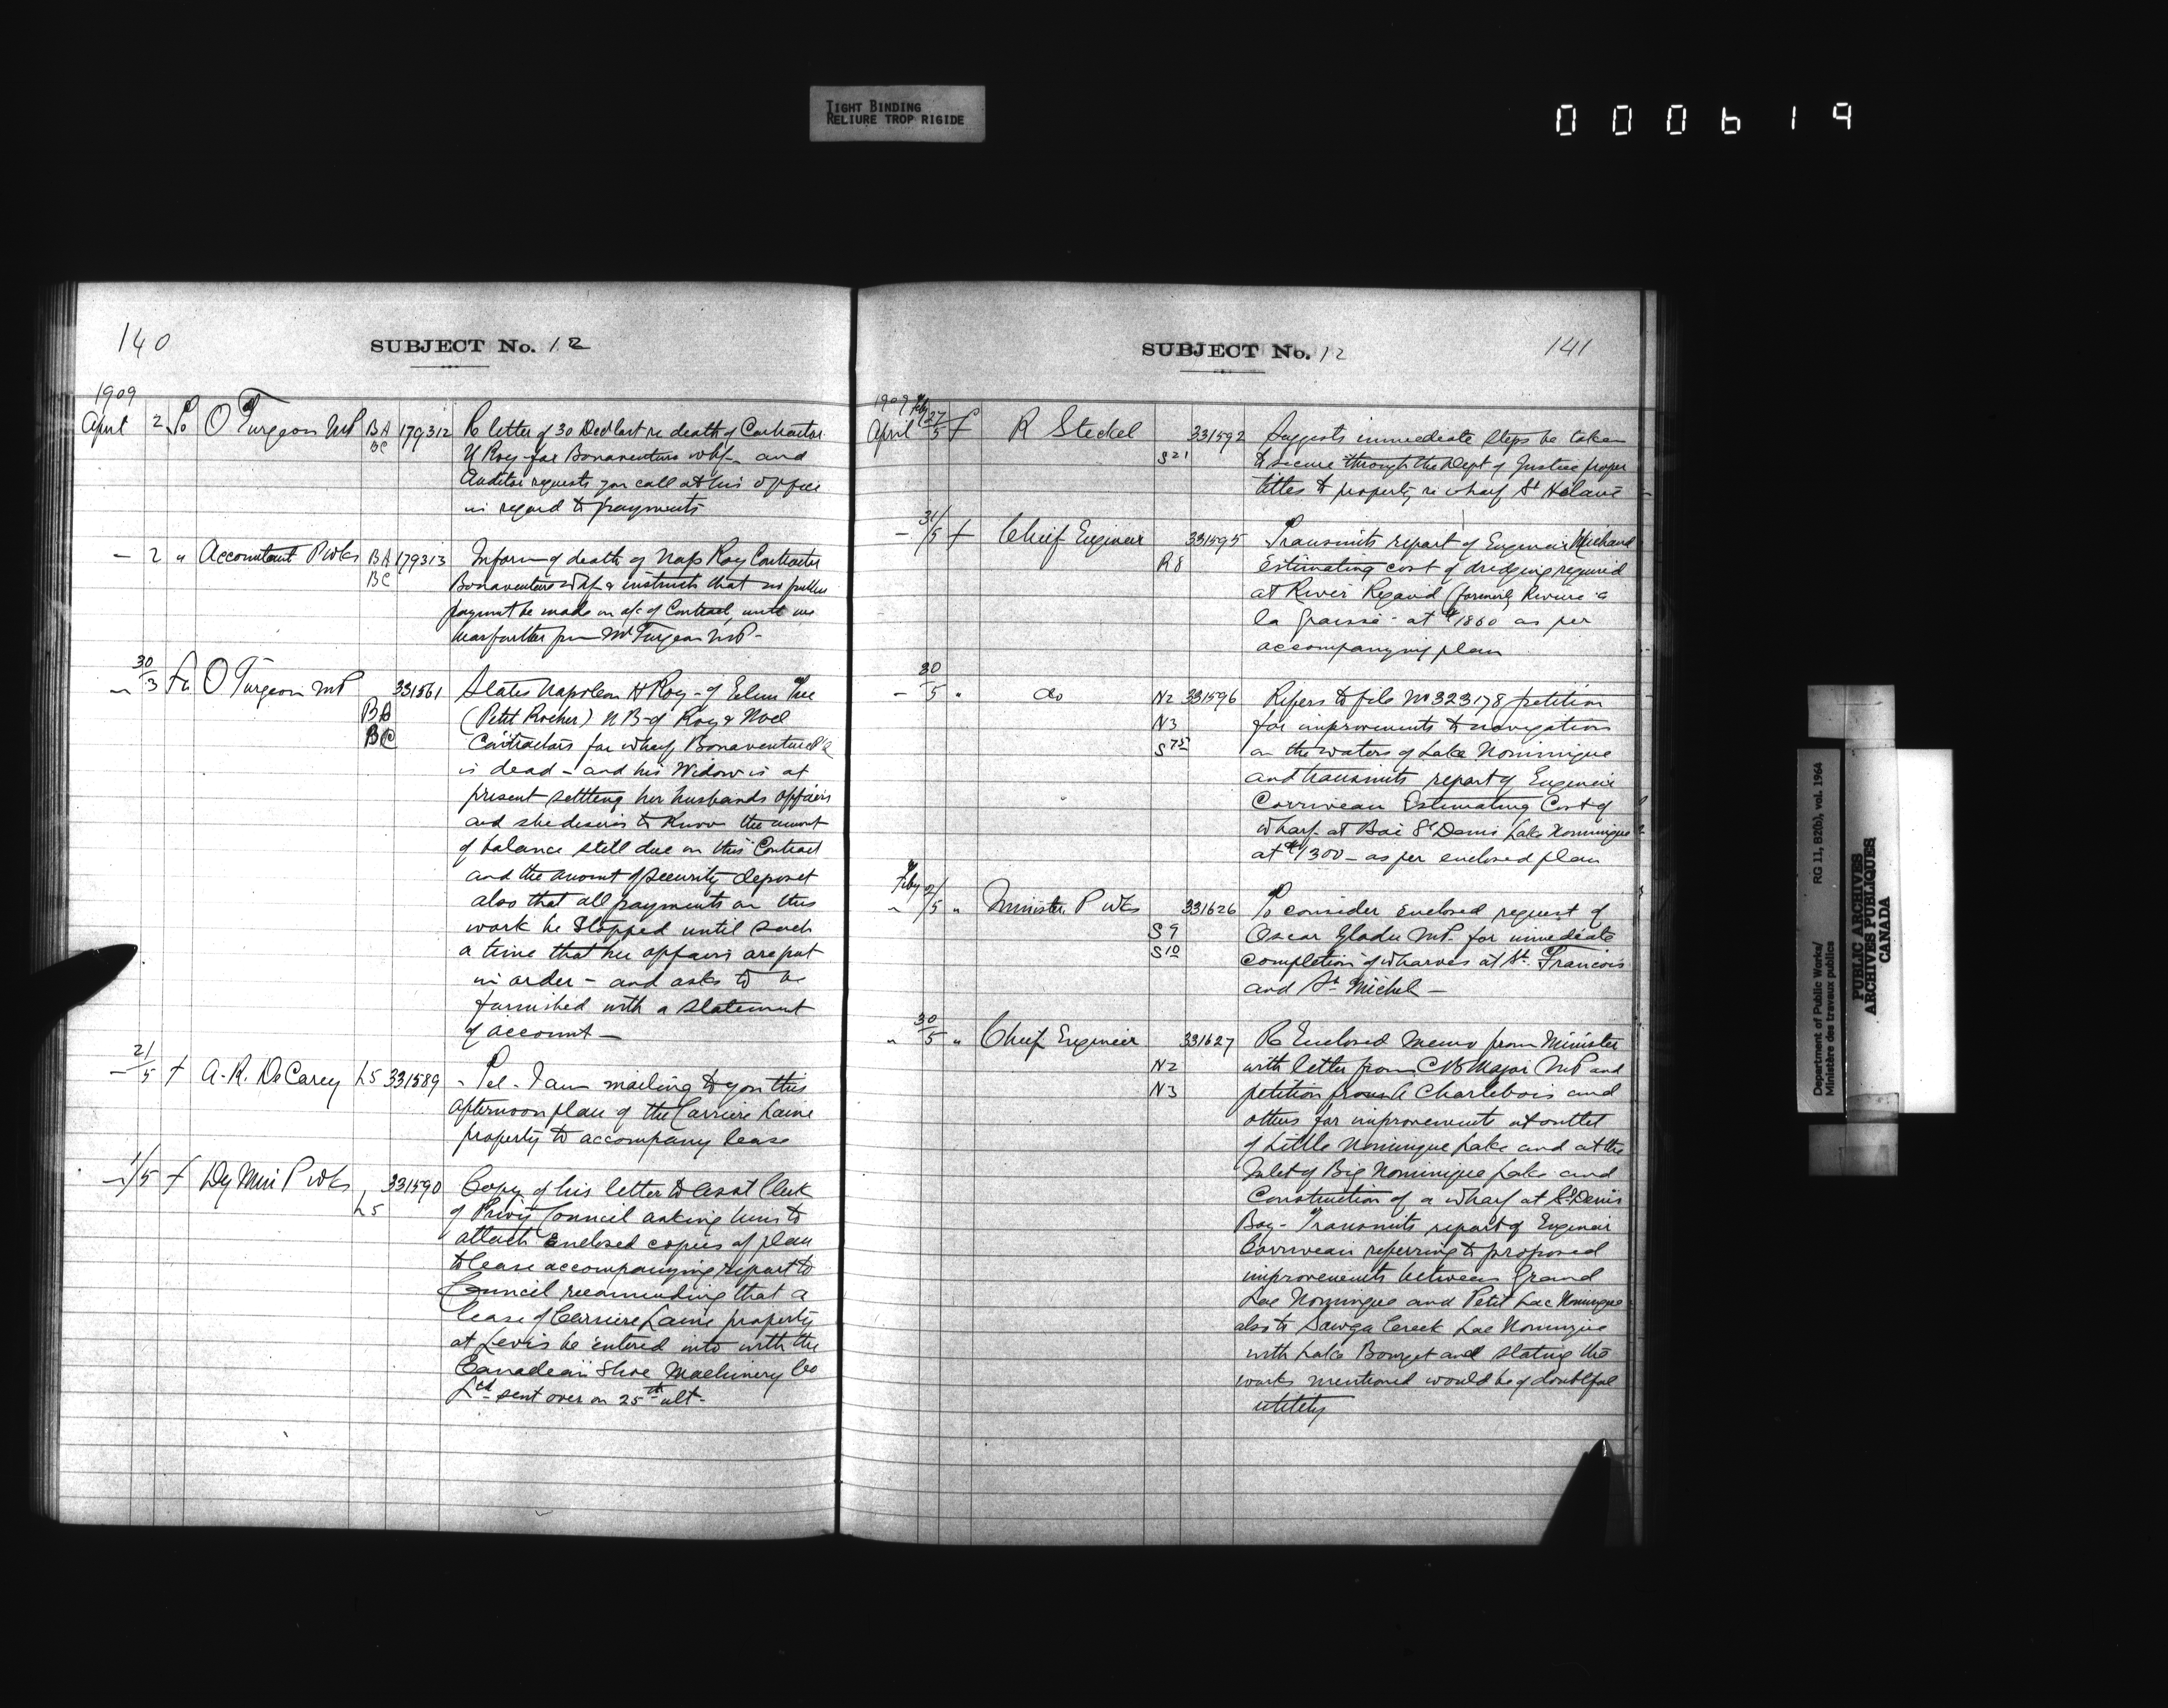 TIGHT BINDING
RELIURE TROP RIGIDE
000619
140
SUBJECT No. 12
1909
April 2 To O Turgeon MP BA 179312 Re letter of 30 Dec last re death of Contractor
BC N Roy for Bonaventure whf and
Auditor requests you call at his office
in regard to payments
- 2 " Accountant P Wks BA 179313 Inform of death of Nap Roy Contractor
BC Bonaventure Whf & instructs that no further
payment be made on a/c of Contract, until we
hear further from Mr Turgeon MP -
30/3 Fr O Turgeon MP 331561 States Napoleon H Roy - of Elm Tree
BA (Petit Rocher) N B - of Roy & Noel
BC Contractors for wharf Bonaventure PQ
is dead - and his Widow is at
present settling her husbands affairs
and she desires to know the amount
of balance still due on this Contract
and the amount of security deposit
also that all payments on this
work be stopped until such
a time that her affairs are put
in order - and asks to be
furnished with a statement
of account -
- 21/5 f A. R. DeCarey L5 331589 - Tel - I am mailing to you this
afternoon plan of the Carriere Laine
property to accompany lease
- 1/5 f Dy Min P Wks 331590 Copy of his letter to Asst Clerk
L5 of Privy Council asking him to
attach enclosed copies of plan
to lease accompanying report to
Council recommending that a
lease of Carriere Laine property
at Levis be entered into with the
Canadian Shoe Machinery Co
Ltd sent over on 25th ult -
141
SUBJECT No. 12
1909 Feby
April 27/5 f R Steckel 331592 Suggests immediate steps be taken
S21 to secure through the Dept of Justice proper
titles to property re wharf St Hilaire
- 31/5 f Chief Engineer 331595 Transmits report of Engineer Michaud
R8 Estimating cost of dredging required
at River Rigaud (formerly Riviere a
la Graisse - at $1860 as per
accompanying plan
- 30/5 " do N2 331596 Refers to file No 323178 petition
N3 for improvements to navigation
S75 on the waters of Lake Nominingue
and transmits report of Engineer
Corriveau Estimating Cost of
wharf at Bai St Denis Lake Nominingue
at $1300 - as per enclosed plan
Feby
" 2/5 " Minister P Wks 331626 To consider enclosed request of
S9 Oscar Gladu MP. for immediate
S10 completion of wharves at St. Francois
and St Michel -
" 30/5 " Chief Engineer 331627 Re Enclosed Memo from Minister
N2 with letter from C B Major MP and
N3 petition from A Charlebois and
others for improvements at outlet
of Little Nominingue Lake and at the
Inlet of Big Nominingue Lake and
Construction of a wharf at St Denis
Bay - Transmits report of Engineer
Corriveau referring to proposed
improvements between Grand
Lac Nomingue and Petit Lac Nomingue
also to Sawga Creek Lac Nomingue
with Lake Bourget and stating the
works mentioned would be of doubtful
utility
Department of Public Works/ RG 11, B2(b), vol. 1964
Ministère des travaux publics
PUBLIC ARCHIVES
ARCHIVES PUBLIQUES
CANADA